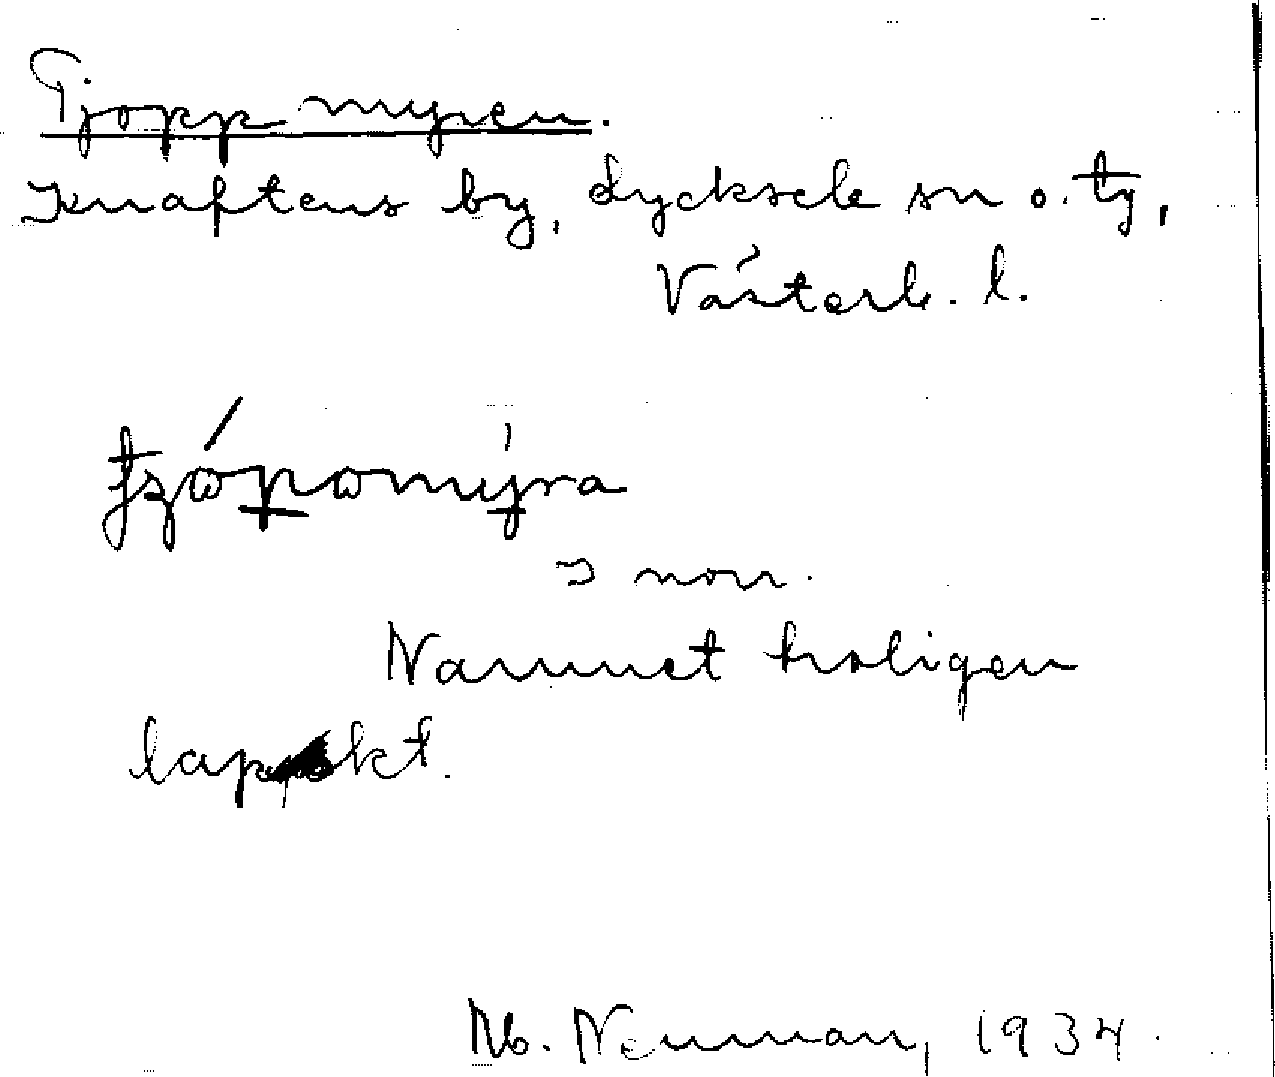 Tjoppmyren.
Knaftens by, Lycksele sn o. tg,
Västerb. l.
tʒópomýra
ɔ: norr.
Namnet troligen
lapskt.
Nb. Neuman, 1934.